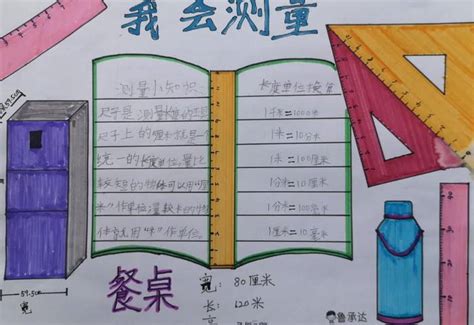 我会测量
测量小知识
尺子是测量长度的工
尺子上的厘米就是一
统一的长度单位量比
较短的物体可以用"厘
米"作单位量较长的物
体常用"米"作单位。
长度单位换算
1千米=1000米
1米=10分米
1米=100厘米
1分米=10厘米
1分米=100毫米
1厘米=10毫米
59.5cm
宽
餐桌
宽: 80厘米
长: 120米
高:
鲁承达